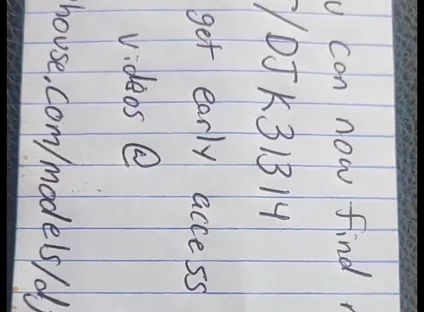 u can now find
/DJK31314
get early access
videos @
house.com/models/dj